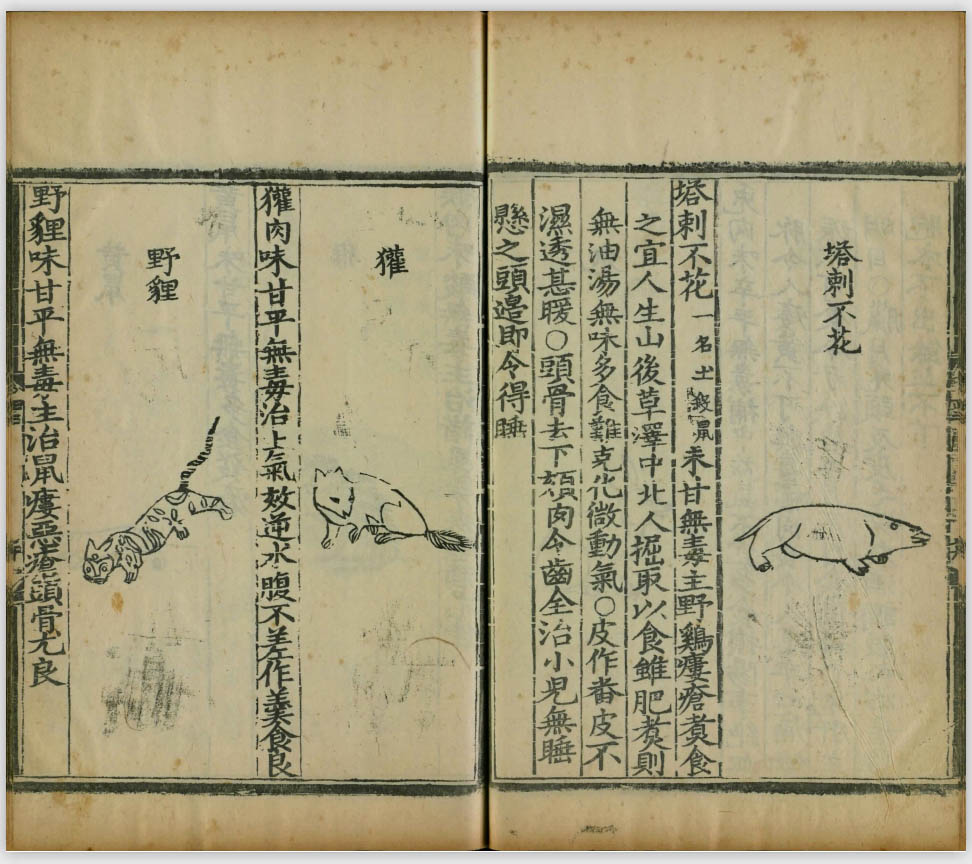 塔剌不花
塔剌不花一名土撥鼠味甘無毒主野雞瘻瘡煮食
之宜人生山後草澤中北人掘取以食雖肥煑則
無油湯無味多食難克化微動氣〇皮作番皮不
濕透甚暖〇頭骨去下頦肉令齒全治小兒無睡
懸之頭邊即令得睡
獾
獾肉味甘平無毒治上氣欬逆水腹不差作羹食良
野貍
野貍味甘平無毒主治鼠瘻惡瘡頭骨尤良